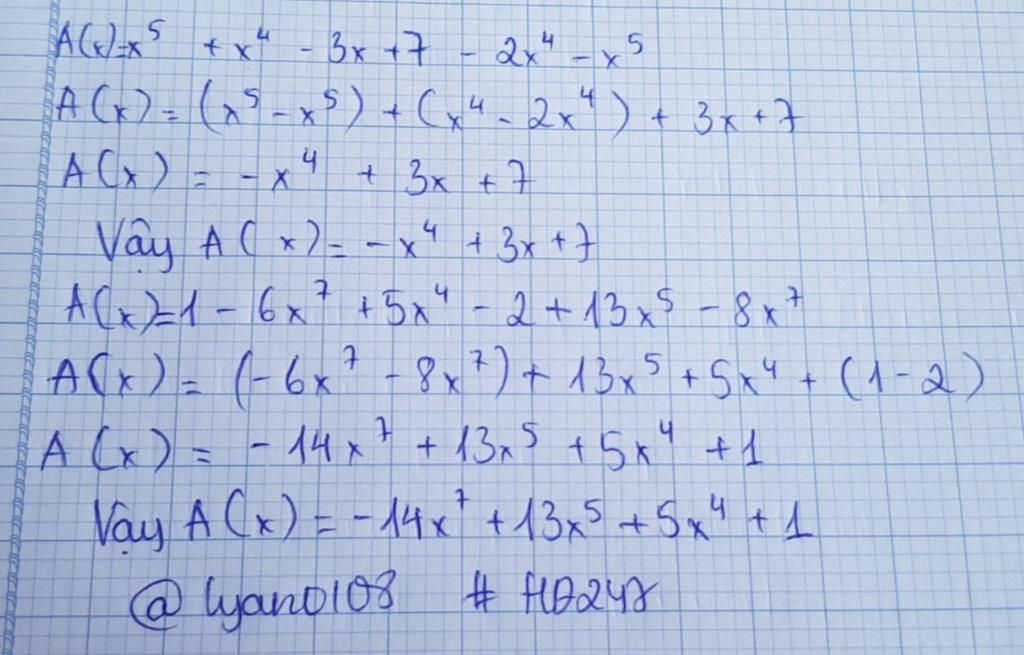 A(x)=x⁵ + x⁴ - 3x + 7 - 2x⁴ - x⁵
A(x) = (x⁵ - x⁵) + (x⁴ - 2x⁴) + 3x + 7
A(x) = -x⁴ + 3x + 7
Vậy A(x) = -x⁴ + 3x + 7
A(x)=1 - 6x⁷ + 5x⁴ - 2 + 13x⁵ - 8x⁷
A(x) = (-6x⁷ - 8x⁷) + 13x⁵ + 5x⁴ + (1 - 2)
A(x) = -14x⁷ + 13x⁵ + 5x⁴ + 1
Vậy A(x) = -14x⁷ + 13x⁵ + 5x⁴ + 1
@ lyano108 #